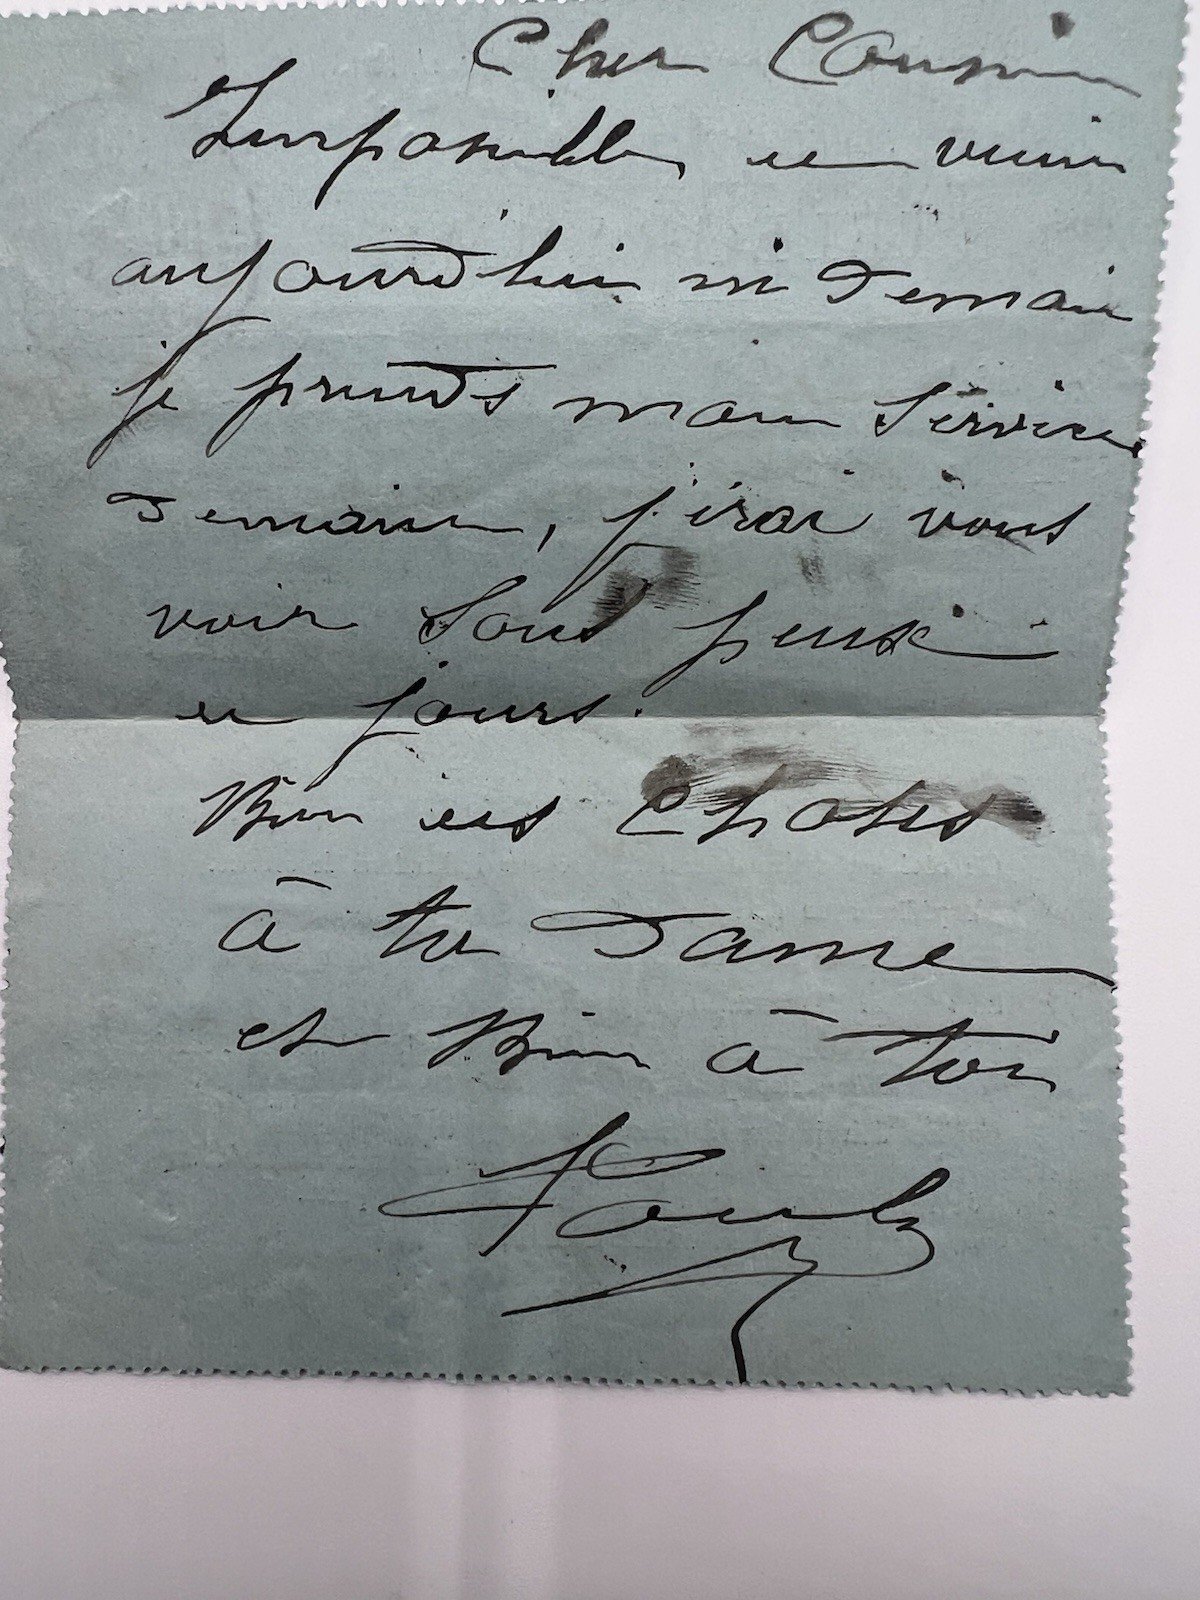 Cher Cousin
Impossible de venir
aujourd'hui ni demain
je prends mon service
demain, j'irai vous
voir sous peux
de jours.
Bien des choses
à ta Dame
et Bien à toi
Paul